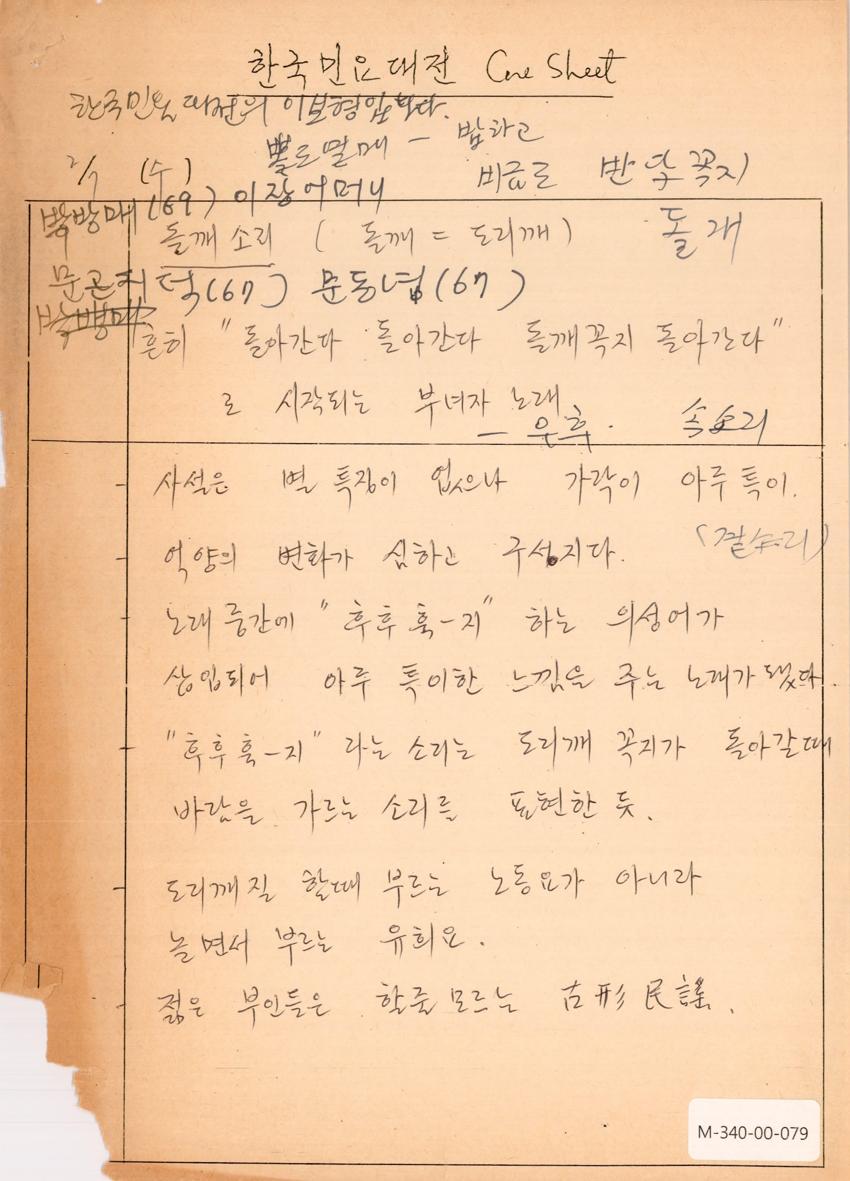 한국민요대전 Cue Sheet
한국민요대전의 이보형입니다.
뽈로떨메 – 밥하고
2/7 (수)
비금도 반달꼭지
박방매(69) 이장어머니
돌깨 소리 ( 돌깨 = 도리깨 ) 돌개
(67) 문동녑(67)
흔히 "돌아간다 돌아간다 돌깨꼭지 돌아간다"
로 시작되는 부녀자 노래
– 운흑. 속소리
– 사설은 별 특징이 없으나 가락이 아주 특이.
(겉소리)
– 억양의 변화가 심하고 구성지다.
– 노래 중간에 "후후 훅–지" 하는 의성어가
삽입되어 아주 특이한 느낌을 주는 노래가 됐다.
– "후후훅–지" 라는 소리는 도리깨 꼭지가 돌아갈때
바람을 가르는 소리를 표현한 듯.
– 도리깨질 할때 부르는 노동요가 아니라
놀면서 부르는 유희요.
– 젊은 부인들은 할줄 모르는 古形 民謠.
M-340-00-079